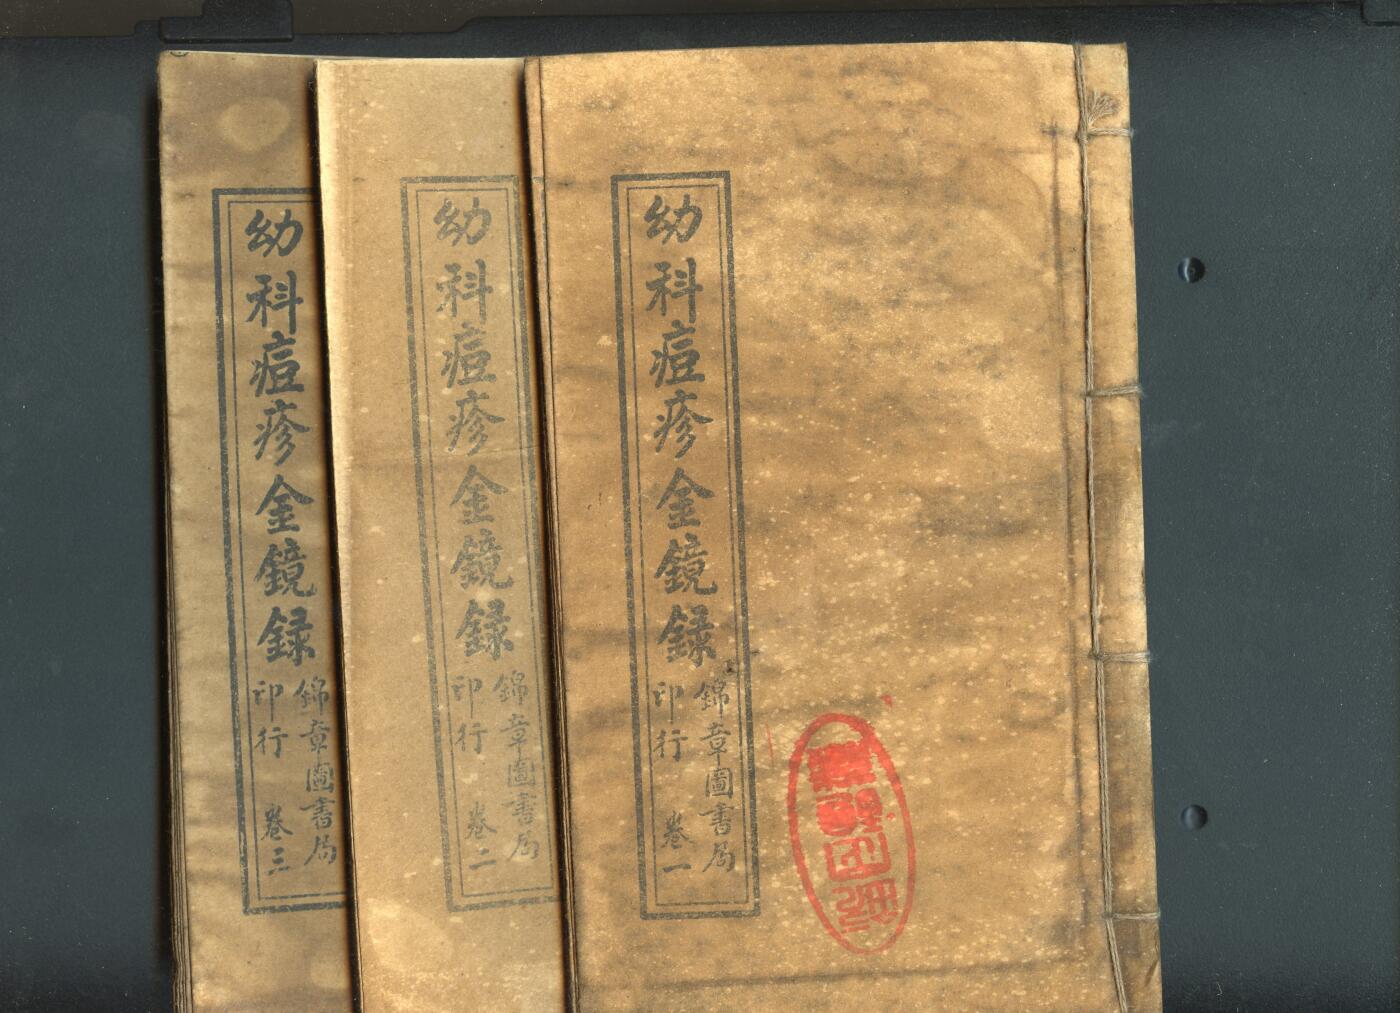 幼科痘疹金鏡録
錦章圖書局
印行
卷一
幼科痘疹金鏡録
錦章圖書局
印行
卷二
幼科痘疹金鏡録
錦章圖書局
印行
卷三